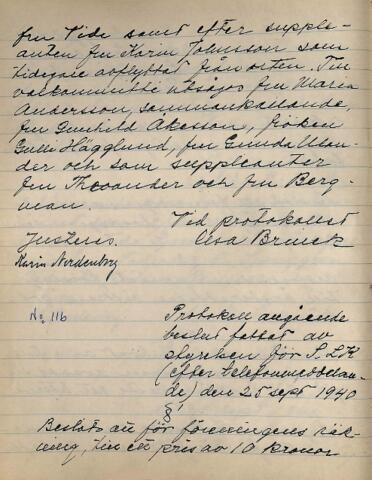 fru Tide samt efter supple-
anten fru Karin Johnsson som
tidigare avflyttat från orten. Till
valkommitté utsågos fru Maria
Andersson, sammankallande,
fru Gunhild Åkesson, fröken
Gulli Hägglund, fru Gunda Ulan-
der och som suppleanter
fru Theander och fru Berg-
man.
Vid protokollet
Elsa Brinck
Justeras.
Karin Nordenborg
No 116
Protokoll angående
beslut fattat av
styrelsen för S.L.K
(efter telefonmeddelan-
de) den 25 sept 1940
§ 1
Beslöts att för föreningens räk-
ning, till ett pris av 10 kronor